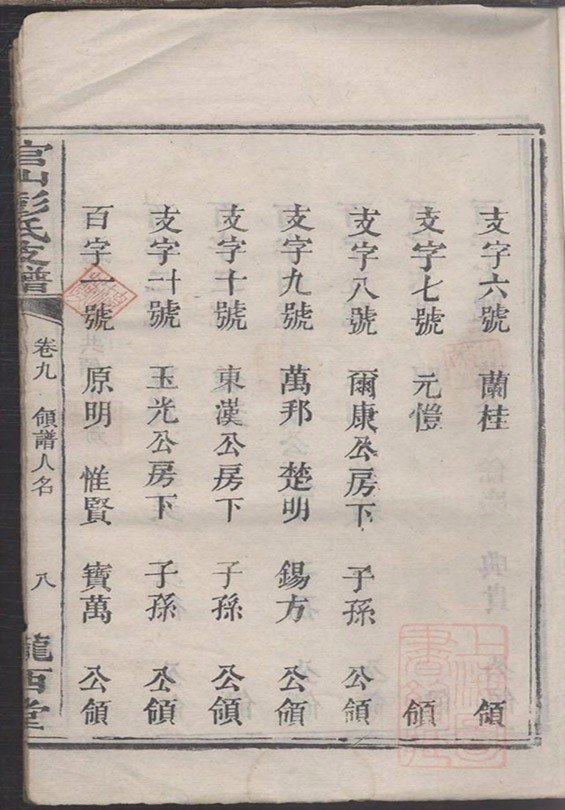 支字六號 蘭桂 領
支字七號 元愷 領
支字八號 爾康公房下 子孫 公領
支字九號 萬邦 楚明 錫方 公領
支字十號 東漢公房下 子孫 公領
支字廿號 玉光公房下 子孫 公領
百字一號 原明 惟賢 寶萬 公領
官山彭氏支譜 卷九 領譜人名 八 隴西堂